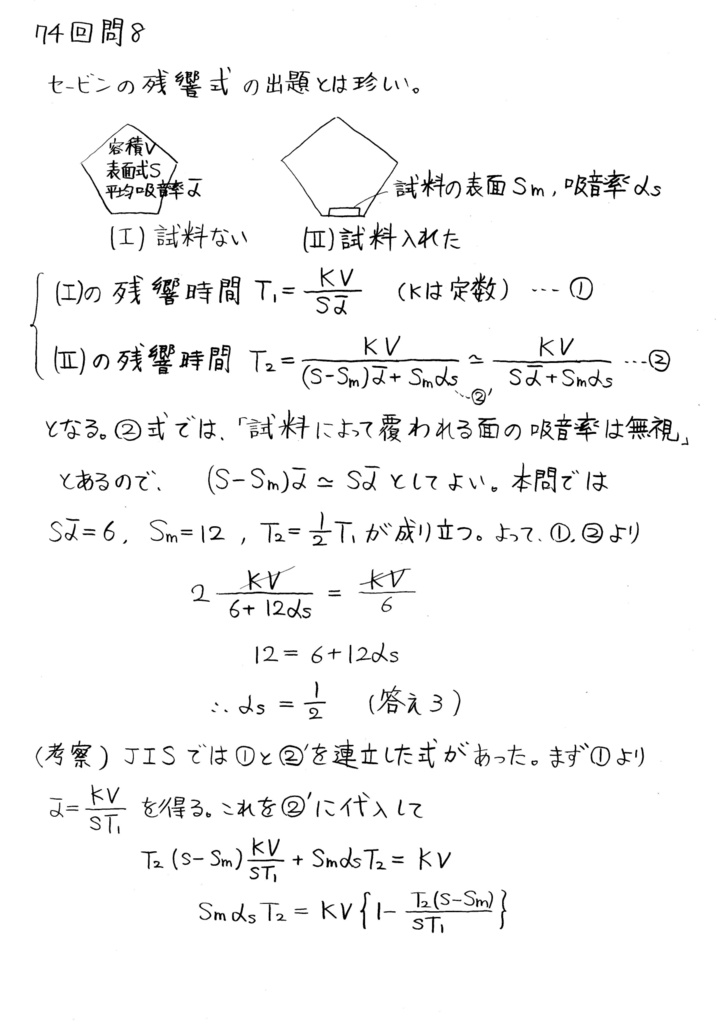 74回問8
セービンの残響式の出題とは珍しい。
容積V
表面式S
平均吸音率ᾱ
試料の表面Sm, 吸音率αs
(Ⅰ)試料ない
(Ⅱ)試料入れた
(Ⅰ)の残響時間 T₁ = KV/Sᾱ (Kは定数) … ①
(Ⅱ)の残響時間 T₂ = KV/((S-Sm)ᾱ + Smαs) …②' ≃ KV/(Sᾱ + Smαs) … ②
となる。②式では、「試料によって覆われる面の吸音率は無視」
とあるので、 (S-Sm)ᾱ ≃ Sᾱ としてよい。本問では
Sᾱ = 6, Sm = 12, T₂ = 1/2 T₁ が成り立つ。よって、①,②より
2 KV/(6 + 12αs) = KV/6
12 = 6 + 12αs
∴ αs = 1/2 (答え3)
(考察) JISでは①と②'を連立した式があった。まず①より
ᾱ = KV/ST₁ を得る。これを②'に代入して
T₂(S-Sm) KV/ST₁ + SmαsT₂ = KV
SmαsT₂ = KV{1 - T₂(S-Sm)/ST₁}